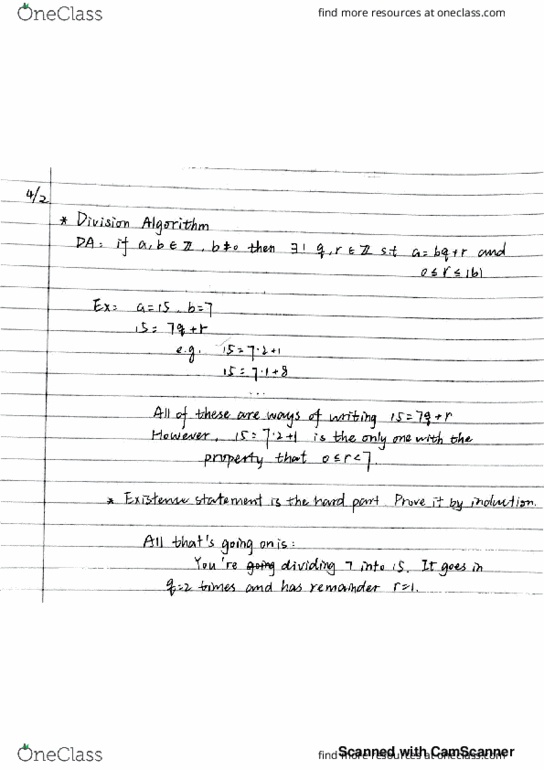 OneClass
find more resources at oneclass.com
4/2
* Division Algorithm
DA: if a, b ∈ ℤ, b≠0 then ∃! q, r ∈ ℤ s.t a= bq+r and
0 ≤ r ≤ |b|
Ex: a=15, b=7
15= 7q+r
e.g. 15=7·2+1
15=7·1+8
...
All of these are ways of writing 15=7q+r
However, 15=7·2+1 is the only one with the
property that 0≤r<7.
* Existense statement is the hard part. Prove it by induction.
All that's going on is:
You're going dividing 7 into 15. It goes in
q=2 times and has remainder r=1.
OneClass
find more resources at oneclass.com
Scanned with CamScanner